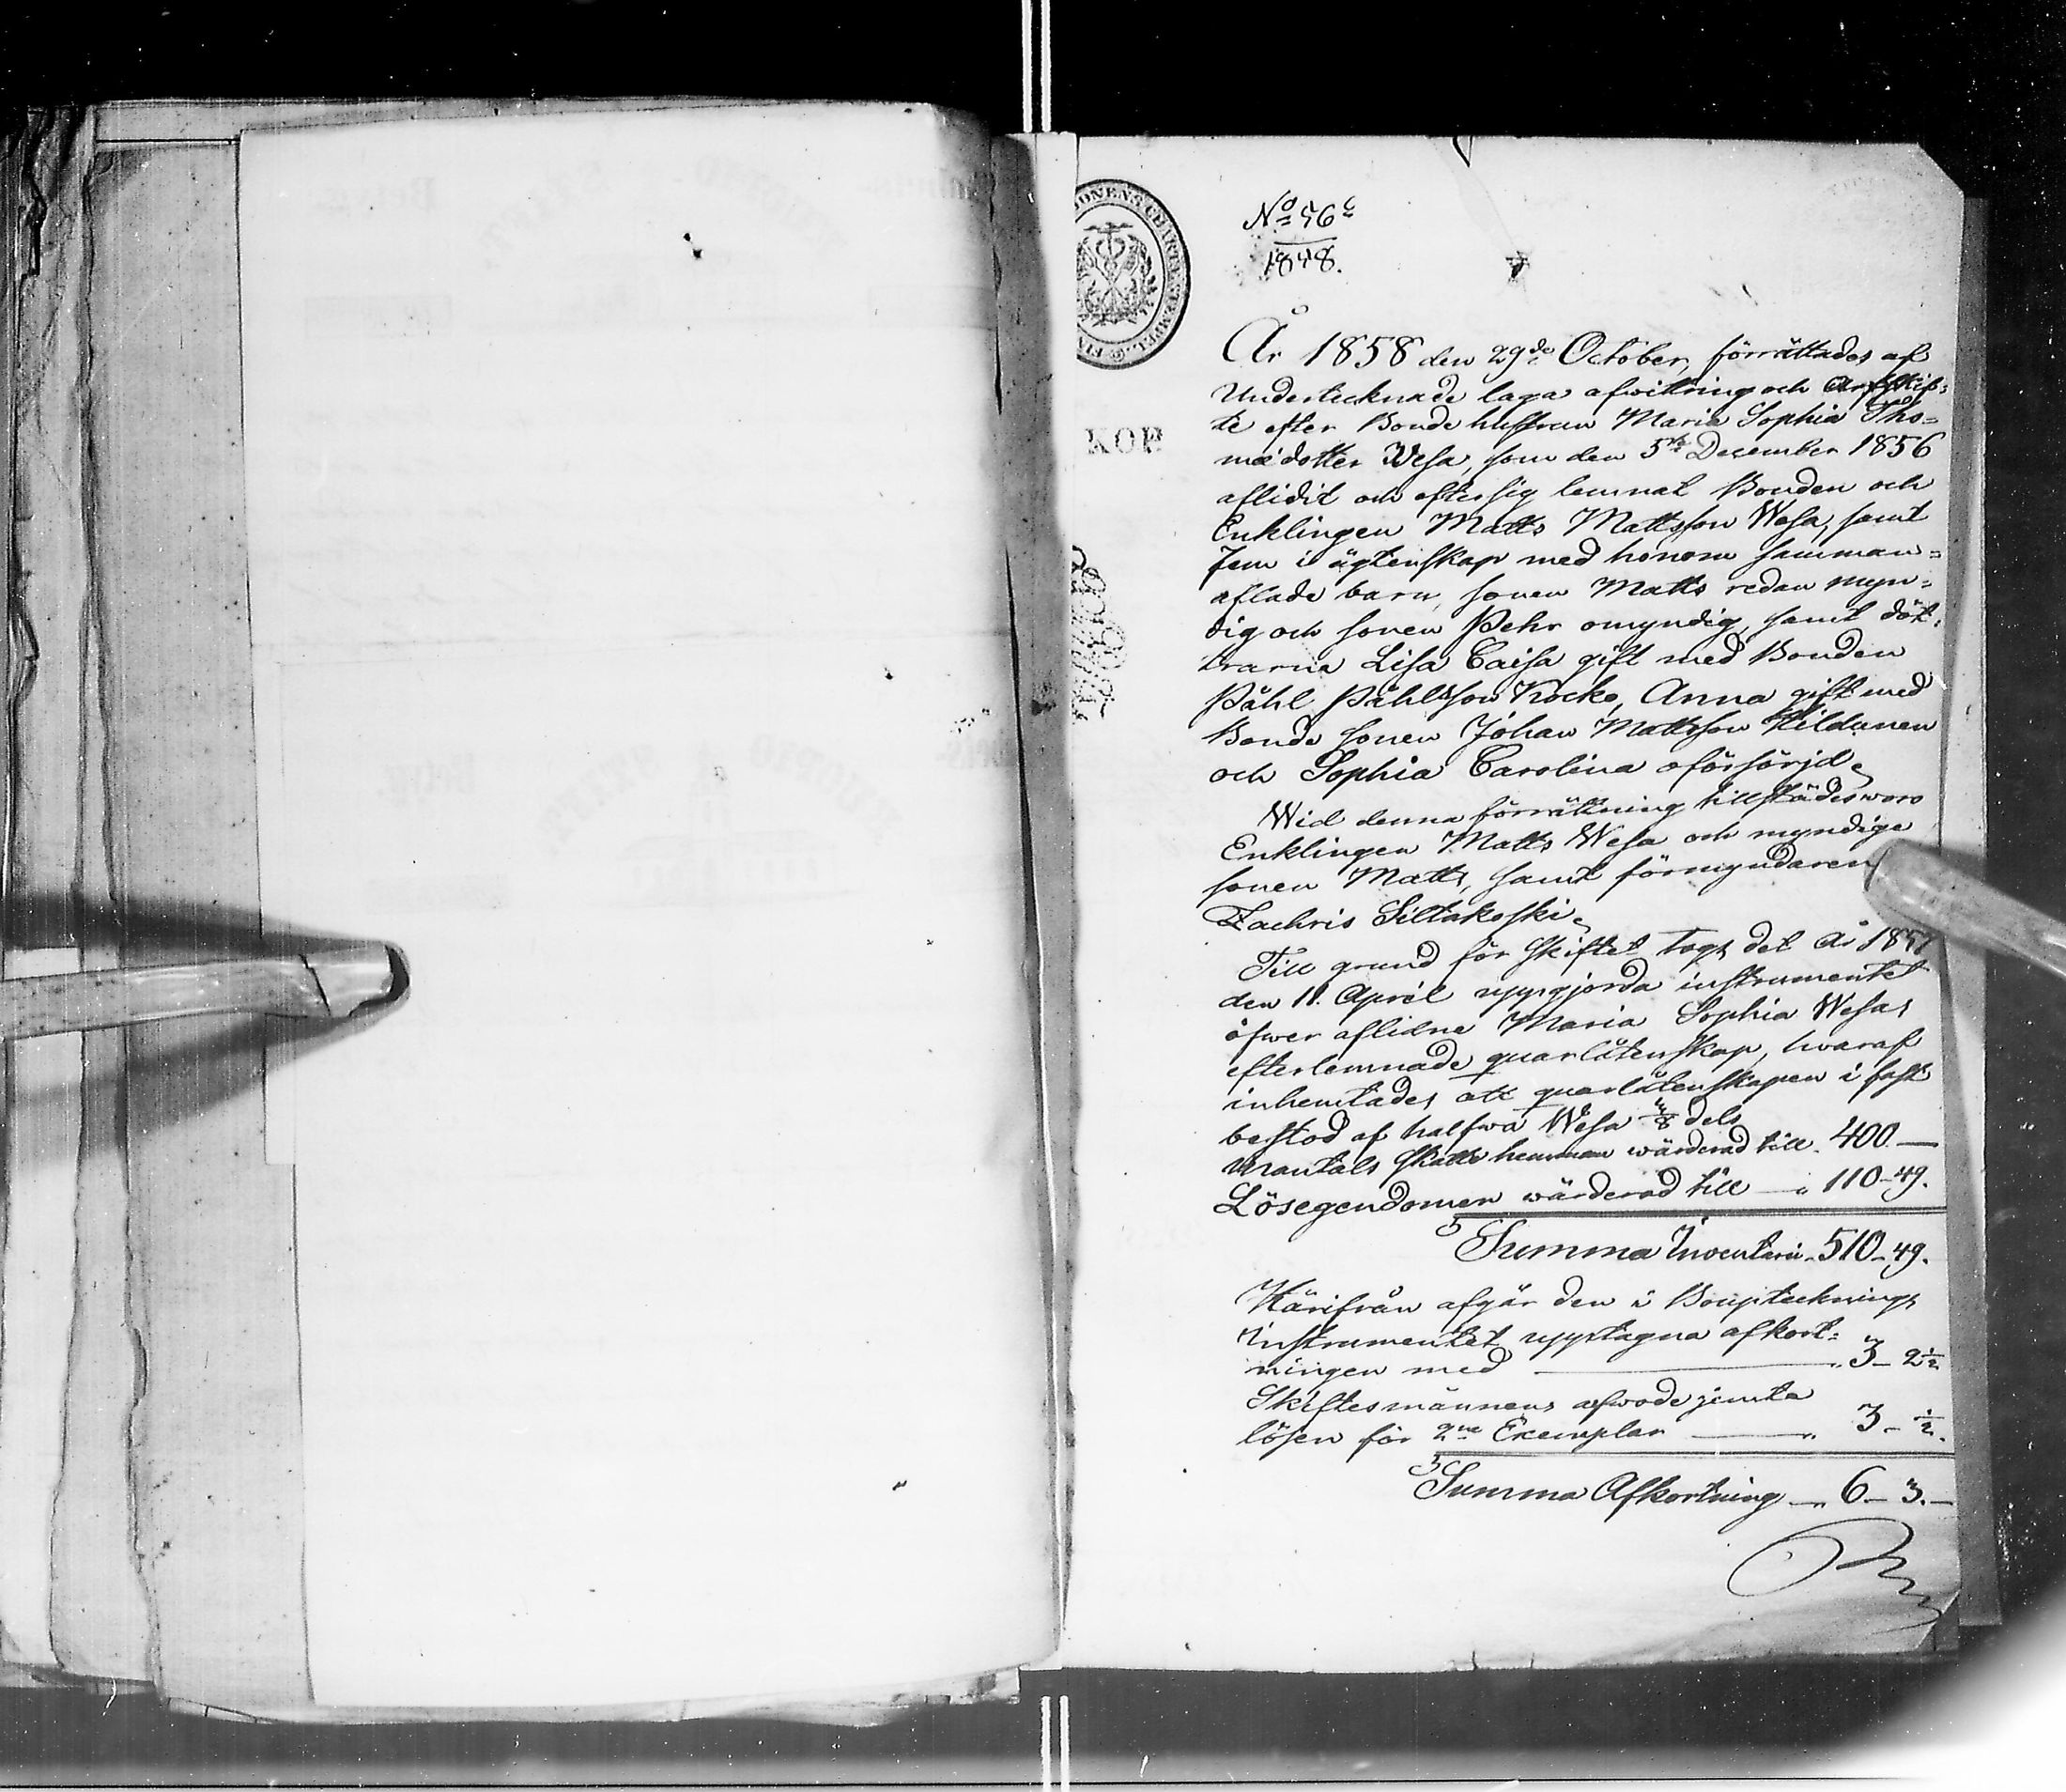 Nº 56 c
1848.
År 1858 den 29de October, förrättades af
Undertecknade laga afwittring och Arfskif=
te efter Bondehustrun Maria Sophia Tho=
mædotter Wesa, som den 5te December 1856
aflidit och efter sig lemnat Bonden och
Enklingen Matts Mattsson Wesa, samt
fem i ägtenskap med honom samman=
aflade barn, sonen Matts redan myn=
dig och sonen Pehr omyndig, samt döt=
trarna Lisa Caisa gift med Bonden
Påhl Påhlsson Kocko, Anna gift med
Bonde sonen Johan Mattsson Hildunen
och Sophia Carolina oförsörjd.
Wid denna förrättning tillstädes woro
Enklingen Matts Wesa och myndige
sonen Matts, samt förmyndaren
Zachris Siltakoski.
Till grund för skiftet togs det År 1857
den 11. April uppgjorda instrumentet
öfwer aflidne Maria Sophia Wesas
efterlemnade quarlåtenskap, hvaraf
inhemtades att quarlåtenskapen i fast
bestod af halfwa Wesa dels
mantals Skatte hemman wärderad till 400 —
Lösegendomen wärderad till — " 110 - 49.
Summa Inventarii - 510 - 49.
Härifrån afgår den i Bouptecknings
instrumentet upptagna afkort=
ningen med — " 3 - 2½
Skiftesmännens arfwode jemte
lösen för 2ne Exemplar — " 3 - ½.
Summa Afkortning — " 6 - 3. —
KOP